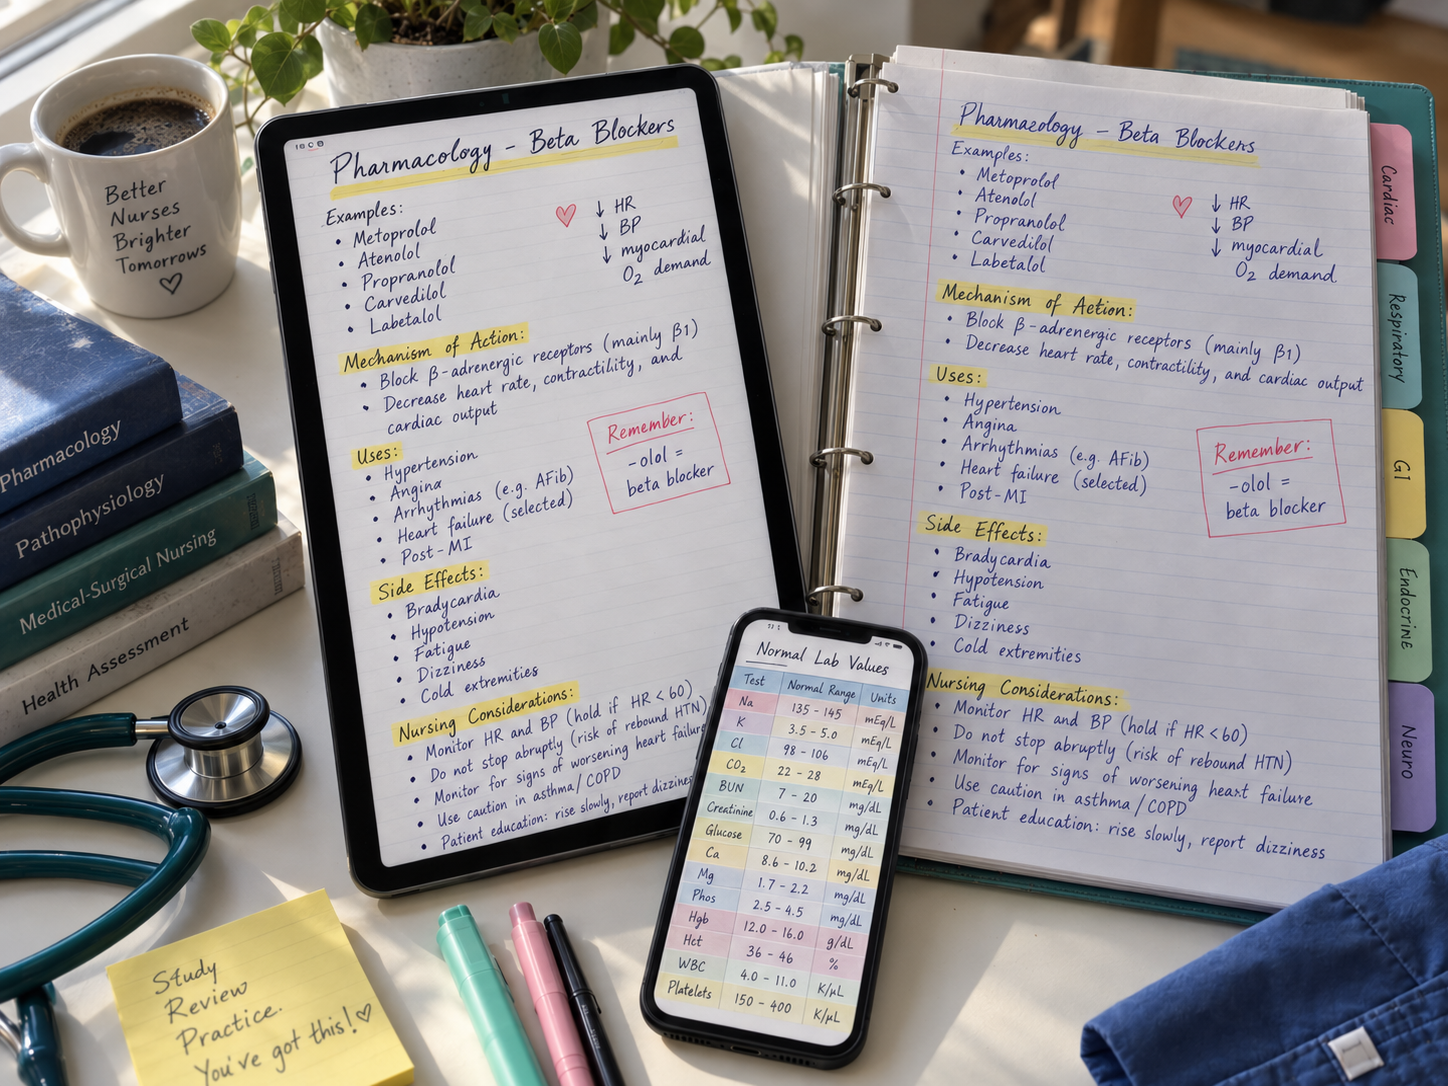 Better
Nurses
Brighter
Tomorrows
Pharmacology
Pathophysiology
Medical-Surgical Nursing
Health Assessment
Pharmacology - Beta Blockers
Examples:
• Metoprolol
• Atenolol
• Propranolol
• Carvedilol
• Labetalol
↓ HR
↓ BP
↓ myocardial
O₂ demand
Mechanism of Action:
• Block β-adrenergic receptors (mainly β1)
• Decrease heart rate, contractility, and
cardiac output
Uses:
• Hypertension
• Angina
• Arrhythmias (e.g. AFib)
• Heart failure (selected)
• Post-MI
Remember:
-olol =
beta blocker
Side Effects:
• Bradycardia
• Hypotension
• Fatigue
• Dizziness
• Cold extremities
Nursing Considerations:
• Monitor HR and BP (hold if HR < 60)
• Do not stop abruptly (risk of rebound HTN)
• Monitor for signs of worsening heart failure
• Use caution in asthma/COPD
• Patient education: rise slowly, report dizziness
Pharmazology - Beta Blockers
Examples:
• Metoprolol
• Atenolol
• Propranolol
• Carvedilol
• Labetalol
↓ HR
↓ BP
↓ myocardial
O₂ demand
Mechanism of Action:
• Block β-adrenergic receptors (mainly β1)
• Decrease heart rate, contractility, and cardiac output
Uses:
• Hypertension
• Angina
• Arrhythmias (e.g. AFib)
• Heart failure (selected)
• Post-MI
Remember:
-olol =
beta blocker
Side Effects:
• Bradycardia
• Hypotension
• Fatigue
• Dizziness
• Cold extremities
Nursing Considerations:
• Monitor HR and BP (hold if HR <60)
• Do not stop abruptly (risk of rebound HTN)
• Monitor for signs of worsening heart failure
• Use caution in asthma/COPD
• Patient education: rise slowly, report dizziness
Cardiac
Respiratory
GI
Endocrine
Neuro
Normal Lab Values
Test Normal Range Units
Na 135 - 145 mEq/L
K 3.5 - 5.0 mEq/L
Cl 98 - 106 mEq/L
CO₂ 22 - 28 mEq/L
BUN 7 - 20 mg/dL
Creatinine 0.6 - 1.3 mg/dL
Glucose 70 - 99 mg/dL
Ca 8.6 - 10.2 mg/dL
Mg 1.7 - 2.2 mg/dL
Phos 2.5 - 4.5 mg/dL
Hgb 12.0 - 16.0 g/dL
Hct 36 - 46 %
WBC 4.0 - 11.0 K/µL
Platelets 150 - 400 K/µL
Study
Review
Practice.
You've got this!